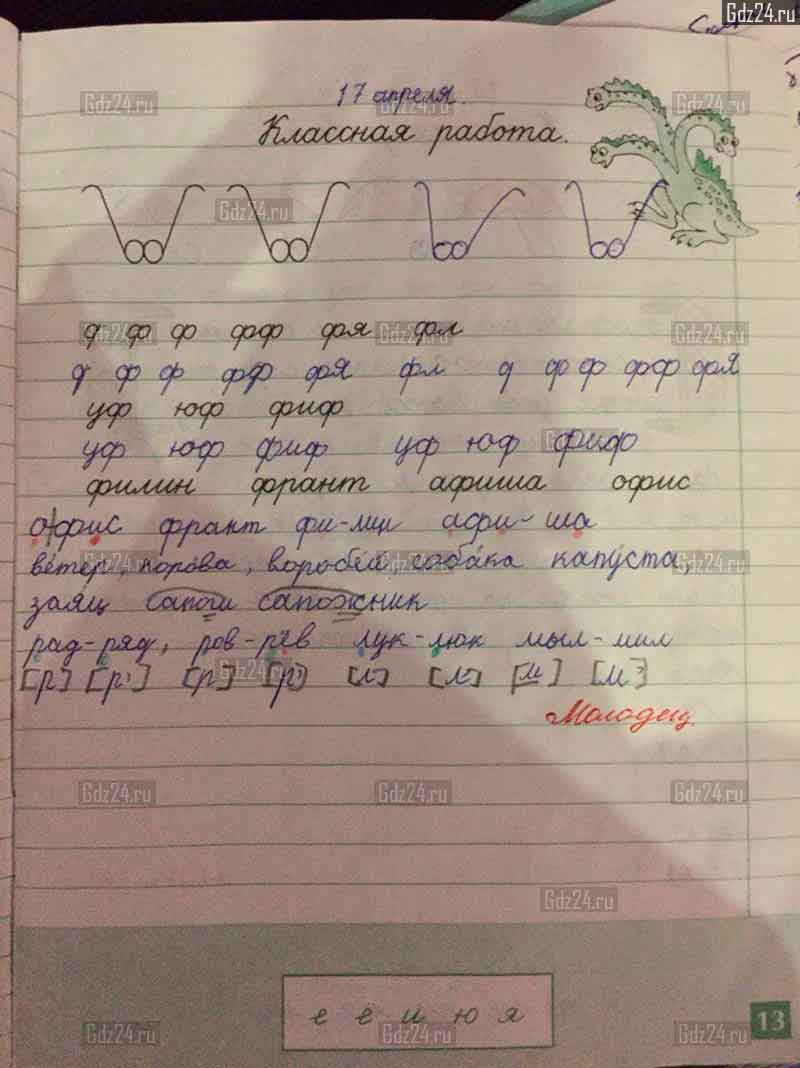 Gdz24.ru
17 апреля.
Классная работа.
ф ф ф фф фя фл
ф ф ф фф фя фл ф ф ф фф фя
уф юф фиф
уф юф фиф уф юф фиф
филин франт афиша офис
офис франт фи-лин афи-ша
ве́тер, коро́ва, воробе́й, соба́ка капу́ста,
заяц сапоги сапожник
рад-ряд, ров-рёв лук-люк мыл-мил
[р] [р'] [р] [р'] [л] [л'] [м] [м']
Молодец
е ё и ю я
13